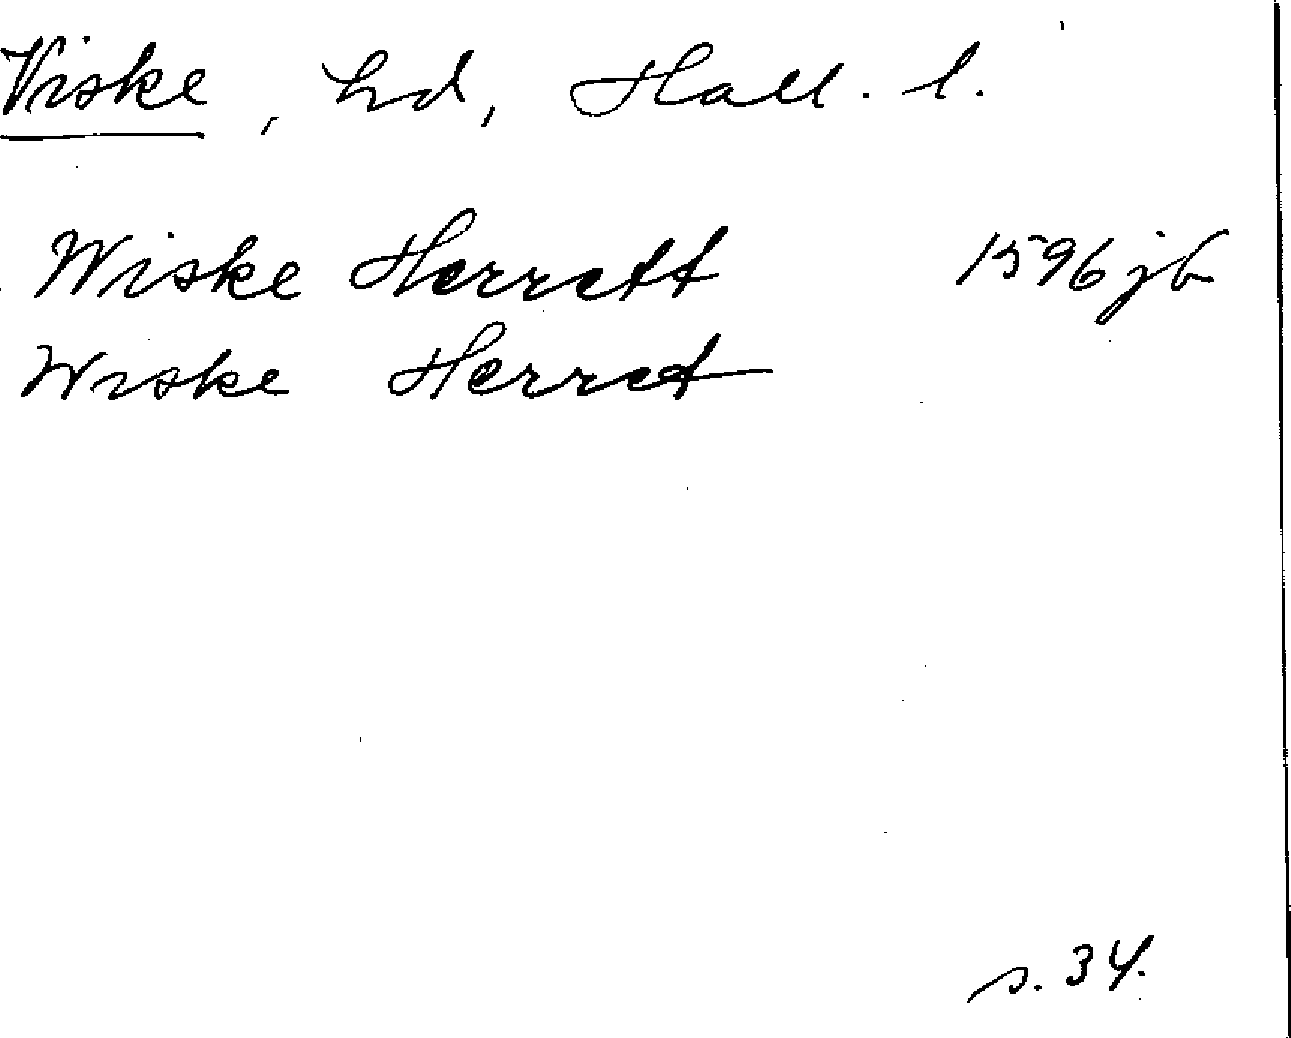 Viske, hd, Hall. l.
Wiske Herrett 1596 jb
Wiske Herret
s. 34.